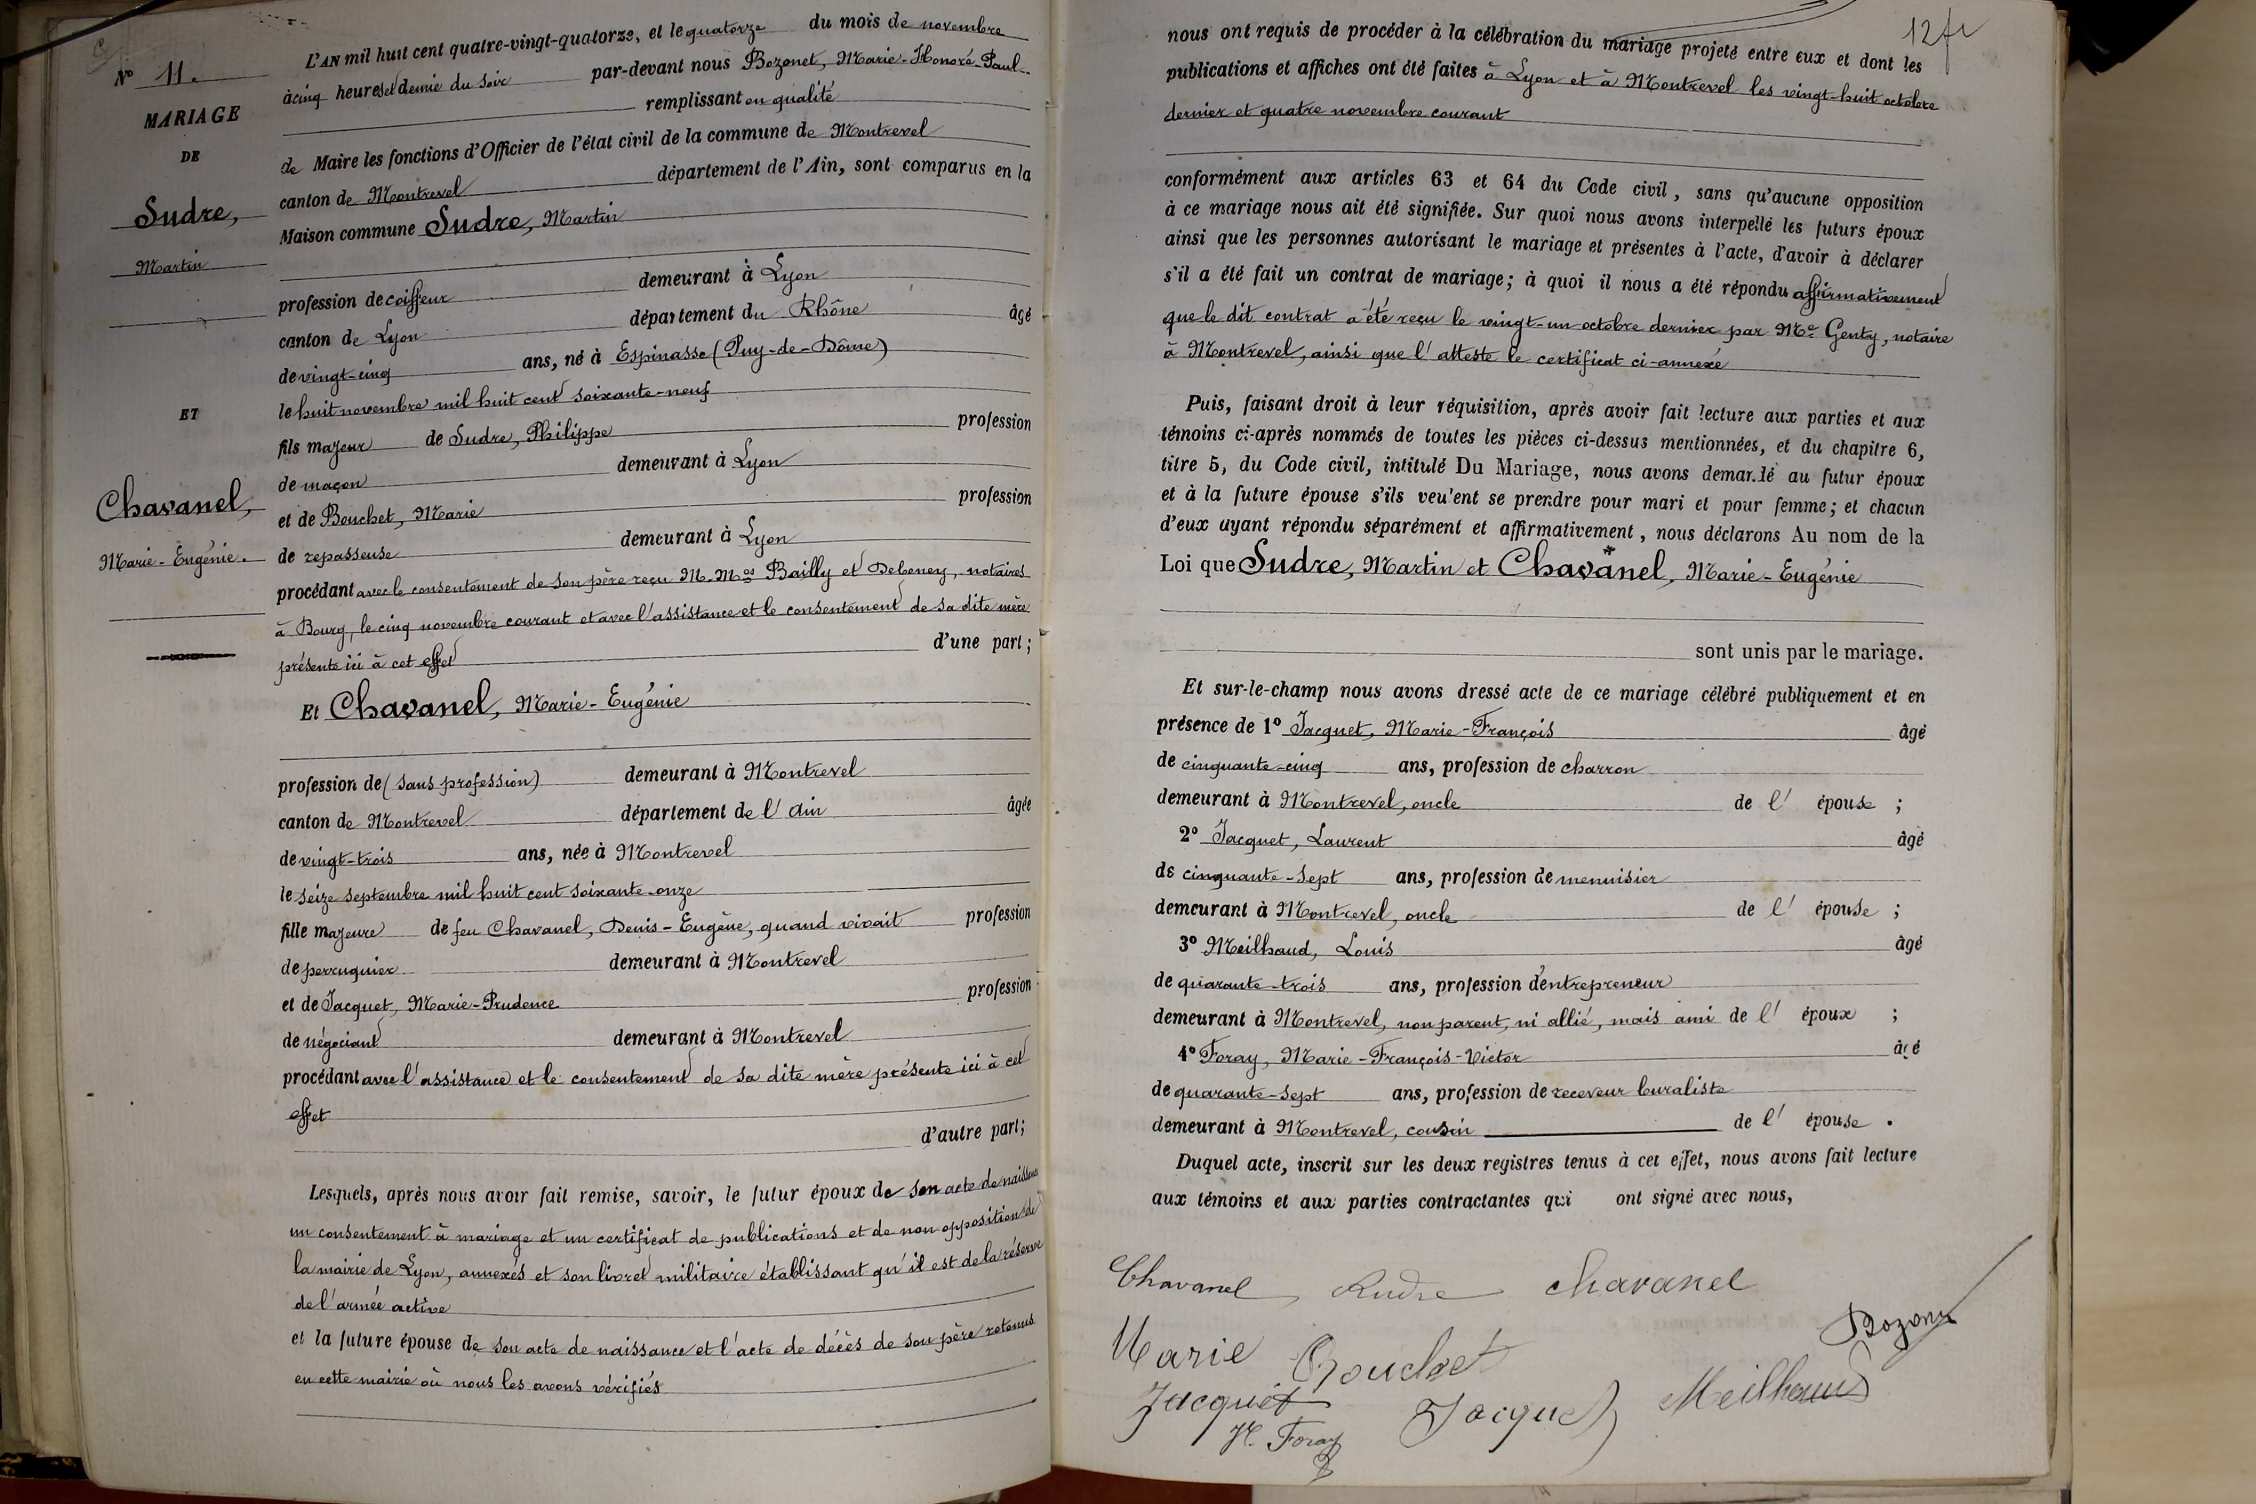 N° 11.
MARIAGE
DE
Sudre,
Martin
ET
Chavanel,
Marie-Eugénie.
L'AN mil huit cent quatre-vingt-quatorze, et le quatorze du mois de novembre
à cinq heures et demie du soir par-devant nous Bozonet, Marie-Honoré-Paul
remplissant en qualité
de Maire les fonctions d'Officier de l'état civil de la commune de Montrevel
canton de Montrevel département de l'Ain, sont comparus en la
Maison commune Sudre, Martin
profession de coiffeur demeurant à Lyon
canton de Lyon département du Rhône âgé
de vingt-cinq ans, né à Espinasse (Puy-de-Dôme)
le huit novembre mil huit cent soixante-neuf
fils majeur de Sudre, Philippe profession
de maçon demeurant à Lyon
et de Bouchet, Marie profession
de repasseuse demeurant à Lyon
procédant avec le consentement de son père reçu M. Mes Bailly et Debeney, notaires
à Bourg, le cinq novembre courant et avec l'assistance et le consentement de sa dite mère
présente ici à cet effet d'une part;
Et Chavanel, Marie-Eugénie
profession de (sans profession) demeurant à Montrevel
canton de Montrevel département de l'Ain âgée
de vingt-trois ans, née à Montrevel
le seize septembre mil huit cent soixante-onze
fille majeure de feu Chavanel, Denis-Eugène, quand vivait profession
de perruquier demeurant à Montrevel
et de Jacquet, Marie-Prudence profession
de négociant demeurant à Montrevel
procédant avec l'assistance et le consentement de sa dite mère présente ici à cet
effet
d'autre part;
Lesquels, après nous avoir fait remise, savoir, le futur époux de son acte de naissance
un consentement à mariage et un certificat de publications et de non opposition de
la mairie de Lyon, annexés et son livret militaire établissant qu'il est de la réserve
de l'armée active
et la future épouse de son acte de naissance et l'acte de décès de son père retenus
en cette mairie où nous les avons vérifiés
12
nous ont requis de procéder à la célébration du mariage projeté entre eux et dont les
publications et affiches ont été faites à Lyon et à Montrevel les vingt-huit octobre
dernier et quatre novembre courant
conformément aux articles 63 et 64 du Code civil, sans qu'aucune opposition
à ce mariage nous ait été signifiée. Sur quoi nous avons interpellé les futurs époux
ainsi que les personnes autorisant le mariage et présentes à l'acte, d'avoir à déclarer
s'il a été fait un contrat de mariage; à quoi il nous a été répondu affirmativement
que le dit contrat a été reçu le vingt-un octobre dernier par Me Genty, notaire
à Montrevel, ainsi que l'atteste le certificat ci-annexé
Puis, faisant droit à leur réquisition, après avoir fait lecture aux parties et aux
témoins ci-après nommés de toutes les pièces ci-dessus mentionnées, et du chapitre 6,
titre 5, du Code civil, intitulé Du Mariage, nous avons demandé au futur époux
et à la future épouse s'ils veulent se prendre pour mari et pour femme; et chacun
d'eux ayant répondu séparément et affirmativement, nous déclarons Au nom de la
Loi que Sudre, Martin et Chavanel, Marie-Eugénie
sont unis par le mariage.
Et sur-le-champ nous avons dressé acte de ce mariage célébré publiquement et en
présence de 1° Jacquet, Marie-François âgé
de cinquante-cinq ans, profession de charron
demeurant à Montrevel, oncle de l' épouse ;
2° Jacquet, Laurent âgé
de cinquante-sept ans, profession de menuisier
demeurant à Montrevel, oncle de l' épouse ;
3° Meilhaud, Louis âgé
de quarante-trois ans, profession d'entrepreneur
demeurant à Montrevel, non parent, ni allié, mais ami de l' époux ;
4° Foray, Marie-François-Victor âgé
de quarante-sept ans, profession de receveur buraliste
demeurant à Montrevel, cousin de l' épouse .
Duquel acte, inscrit sur les deux registres tenus à cet effet, nous avons fait lecture
aux témoins et aux parties contractantes qui ont signé avec nous,
Chavanel Sudre Chavanel
Bozonet
Marie Bouchet
Jacquet Jacquet Meilhaud
Foray